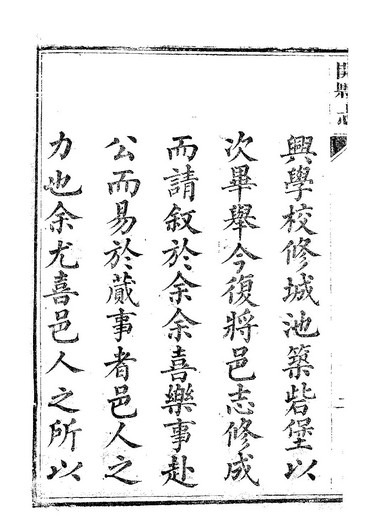 興學校修城池築砦堡以
次畢舉今復將邑志修成
而請敘於余余喜樂事赴
公而易於蕆事者邑人之
力也余尤喜邑人之所以